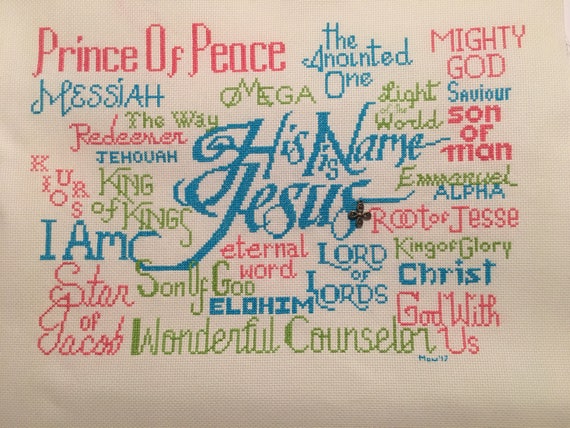 Prince Of Peace
the Anointed One
MIGHTY GOD
MESSIAH
OMEGA
Light of the World
Saviour
The Way
Redeemer
son of man
JEHOVAH
His Name is Jesus
KURIOS
KING of KINGS
Emmanuel
ALPHA
ROOT of JESSE
I AM
eternal word
LORD of LORDS
King of Glory
Star of Jacob
Son Of God
Christ
ELOHIM
God With Us
Wonderful Counselor
Mom'17